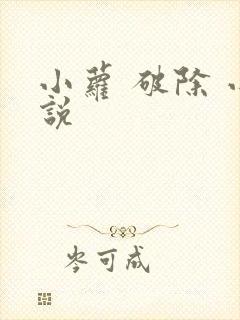 小蘿 破除
説
岑可成